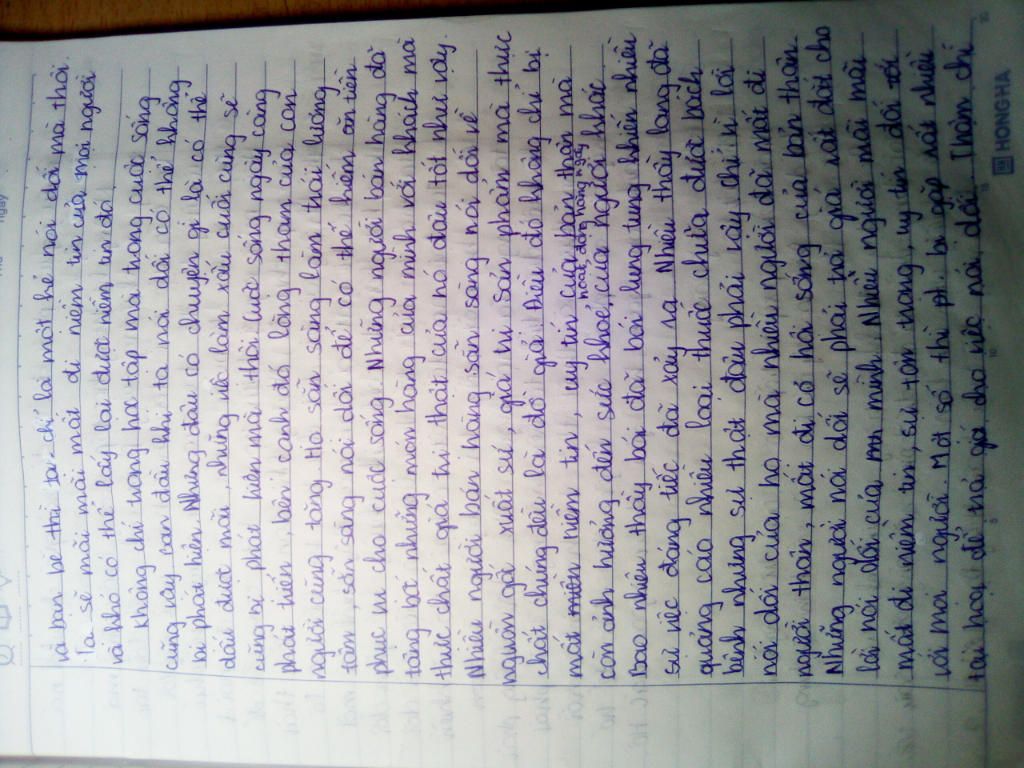 và bạn bè thì ta chỉ là một kẻ nói dối mà thôi.
Ta sẽ mãi mãi mất đi niềm tin của mọi người
và khó có thể lấy lại được niềm tin đó
Không chỉ trong học tập mà trong cuộc sống
cũng vậy can đảm khi ta nói dối có thể không
bị phát hiện. Nhưng đâu có chuyện gì lại có thể
dấu được mãi, những việc làm xấu cuối cùng sẽ
cũng bị phát hiện mà thôi. Cuộc sống ngày càng
phát triển, bên cạnh đó lòng tham của con
người cũng tăng. Họ sẵn sàng làm trái lương
tâm, sẵn sàng nói dối để có thể kiếm tiền
phục vụ cho cuộc sống. Những người bán hàng đã
tâng bốc những món hàng của mình với khách mà
thực chất giá trị thật của nó đâu tốt như vậy.
Nhiều người bán hàng sẵn sàng nói dối về
nguồn gốc xuất sứ, giá trị sản phẩm mà thực
chất chúng đều là đồ giả. Điều đó không chỉ bị
mất niềm tin, uy tín của bản thân mà
còn ảnh hưởng đến sức khỏe, của người khác
Bao nhiêu thầy bói đã bói lung tung khiến nhiều
sự việc đáng tiếc đã xảy ra. Nhiều thầy lang đã
quảng cáo nhiều loại thuốc chữa được bách
bệnh nhưng sự thật đâu phải vậy chỉ vì lời
nói dối của họ mà nhiều người đã mất đi
người thân, mất đi cả sống của bản thân.
Những người nói dối sẽ phải trả giá rất đắt cho
lời nói dối của mình. Nhiều người mãi mãi
mất đi niềm tin, sự tôn trọng, uy tín đối
với mọi người. Một số thì bị gặp rất nhiều
tai họa để trả giá cho việc nói dối. Thậm chí
HONGHA